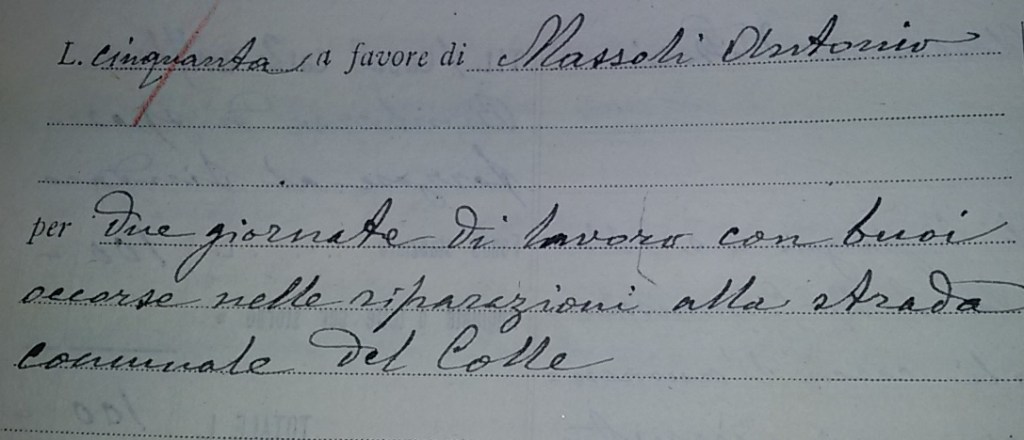 L. cinquanta a favore di Massoli Antonio
per due giornate di lavoro con buoi
occorse nelle riparazioni alla strada
comunale del Colle